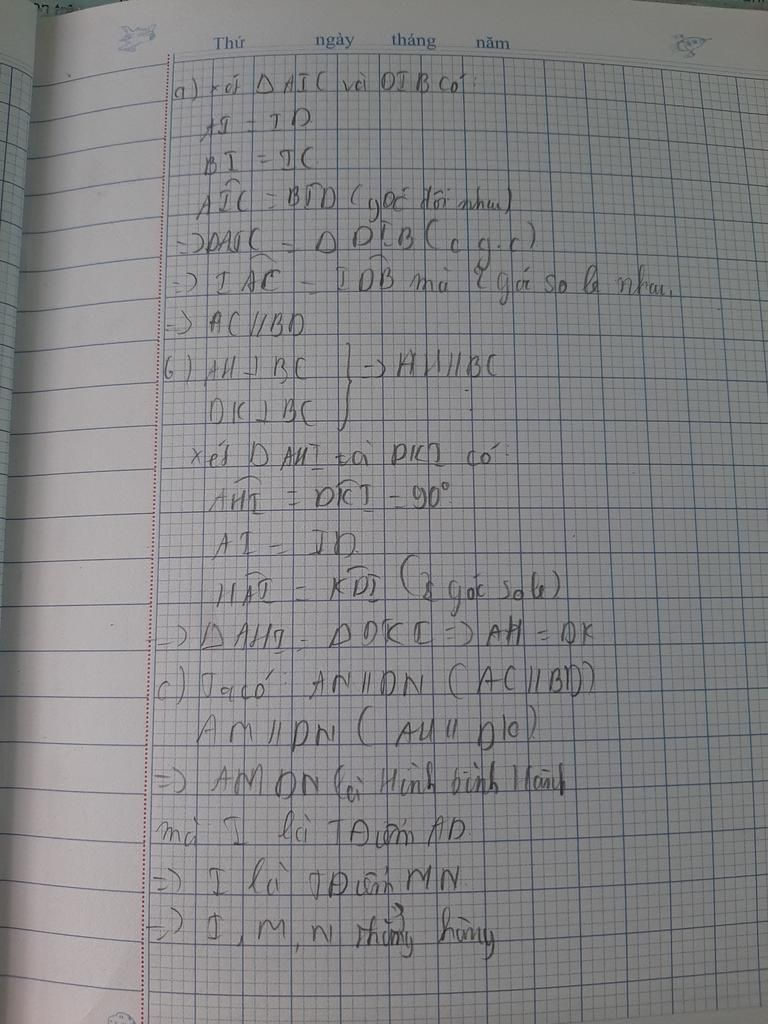 Thứ ngày tháng năm
a) xét Δ AIC và DIB có:
AI = ID
BI = IC
AIC = BID (góc đối nhau)
=> ΔAIC = Δ DIB (c g.c)
=> IAC = IDB mà 2 góc so le nhau.
=> AC // BD
b) AH ⊥ BC
DK ⊥ BC } => AH // BC
xét Δ AHI và DKI có:
AHI = DKI = 90°
AI = ID
HAI = KDI (2 góc so le)
=> Δ AHI = Δ DKI => AH = DK
c) Ta có: AN // DN (AC // BD)
AM // DN (AH // DK)
=> AMDN là Hình bình Hành
mà I là TĐ của AD
=> I là TĐ của MN
=> I, M, N thẳng hàng